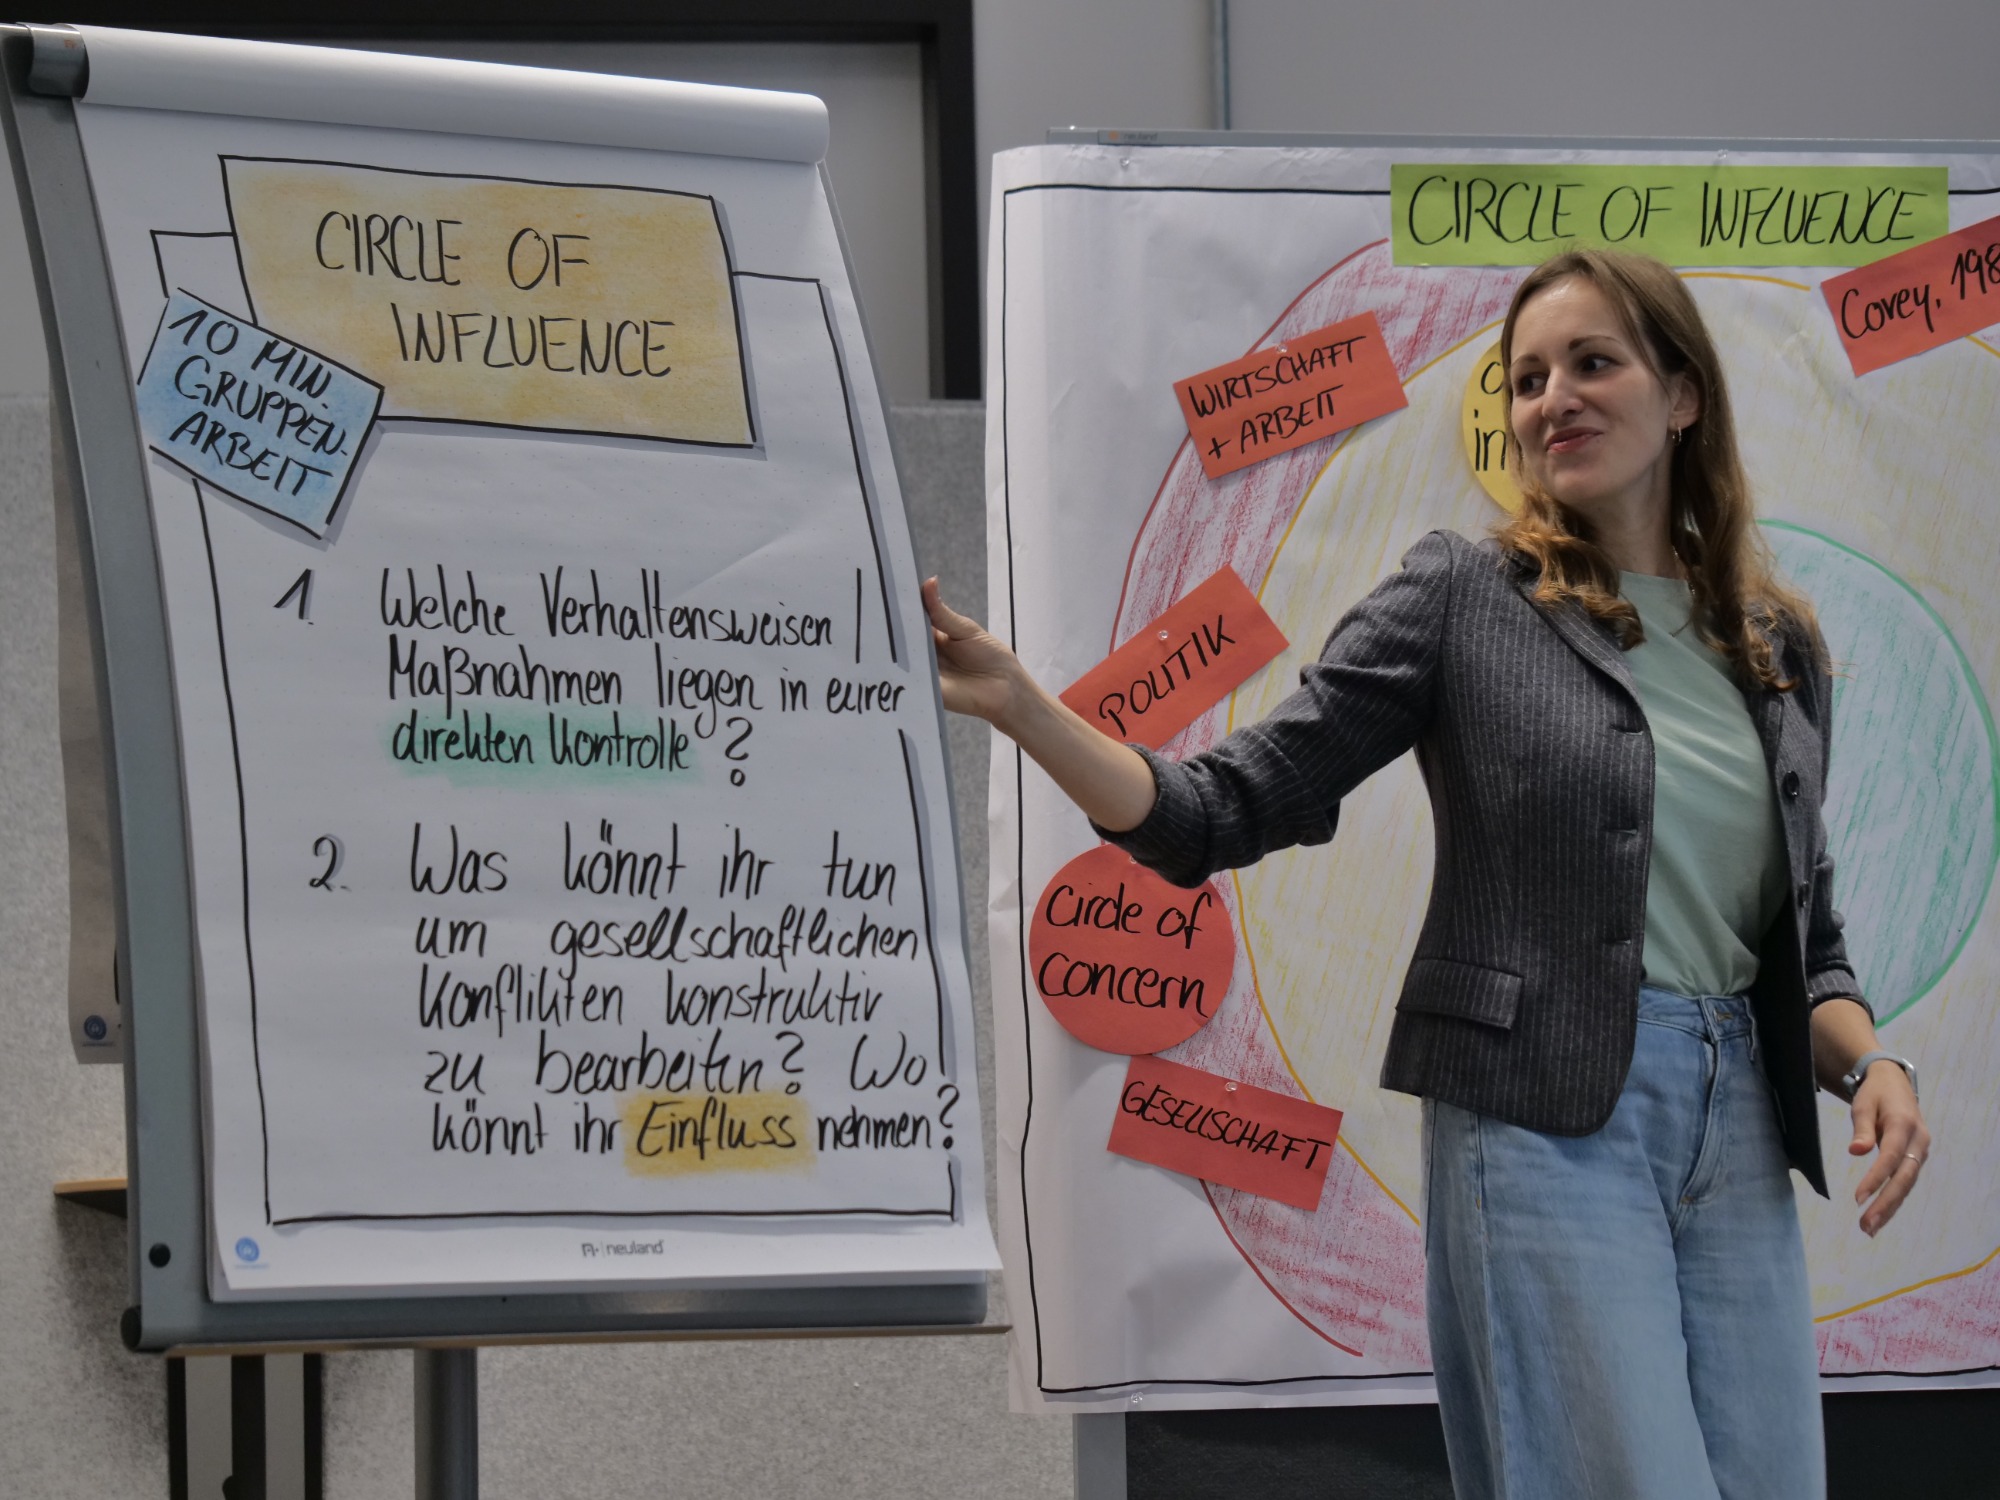 CIRCLE OF
INFLUENCE
10 MIN.
GRUPPEN-
ARBEIT
1. Welche Verhaltensweisen /
Maßnahmen liegen in eurer
direkten Kontrolle?
2. Was könnt ihr tun
um gesellschaftlichen
Konflikten konstruktiv
zu bearbeiten? Wo
könnt ihr Einfluss nehmen?
neuland
neuland
CIRCLE OF INFLUENCE
Covey, 198
WIRTSCHAFT
+ ARBEIT
POLITIK
Circle of
concern
GESELLSCHAFT